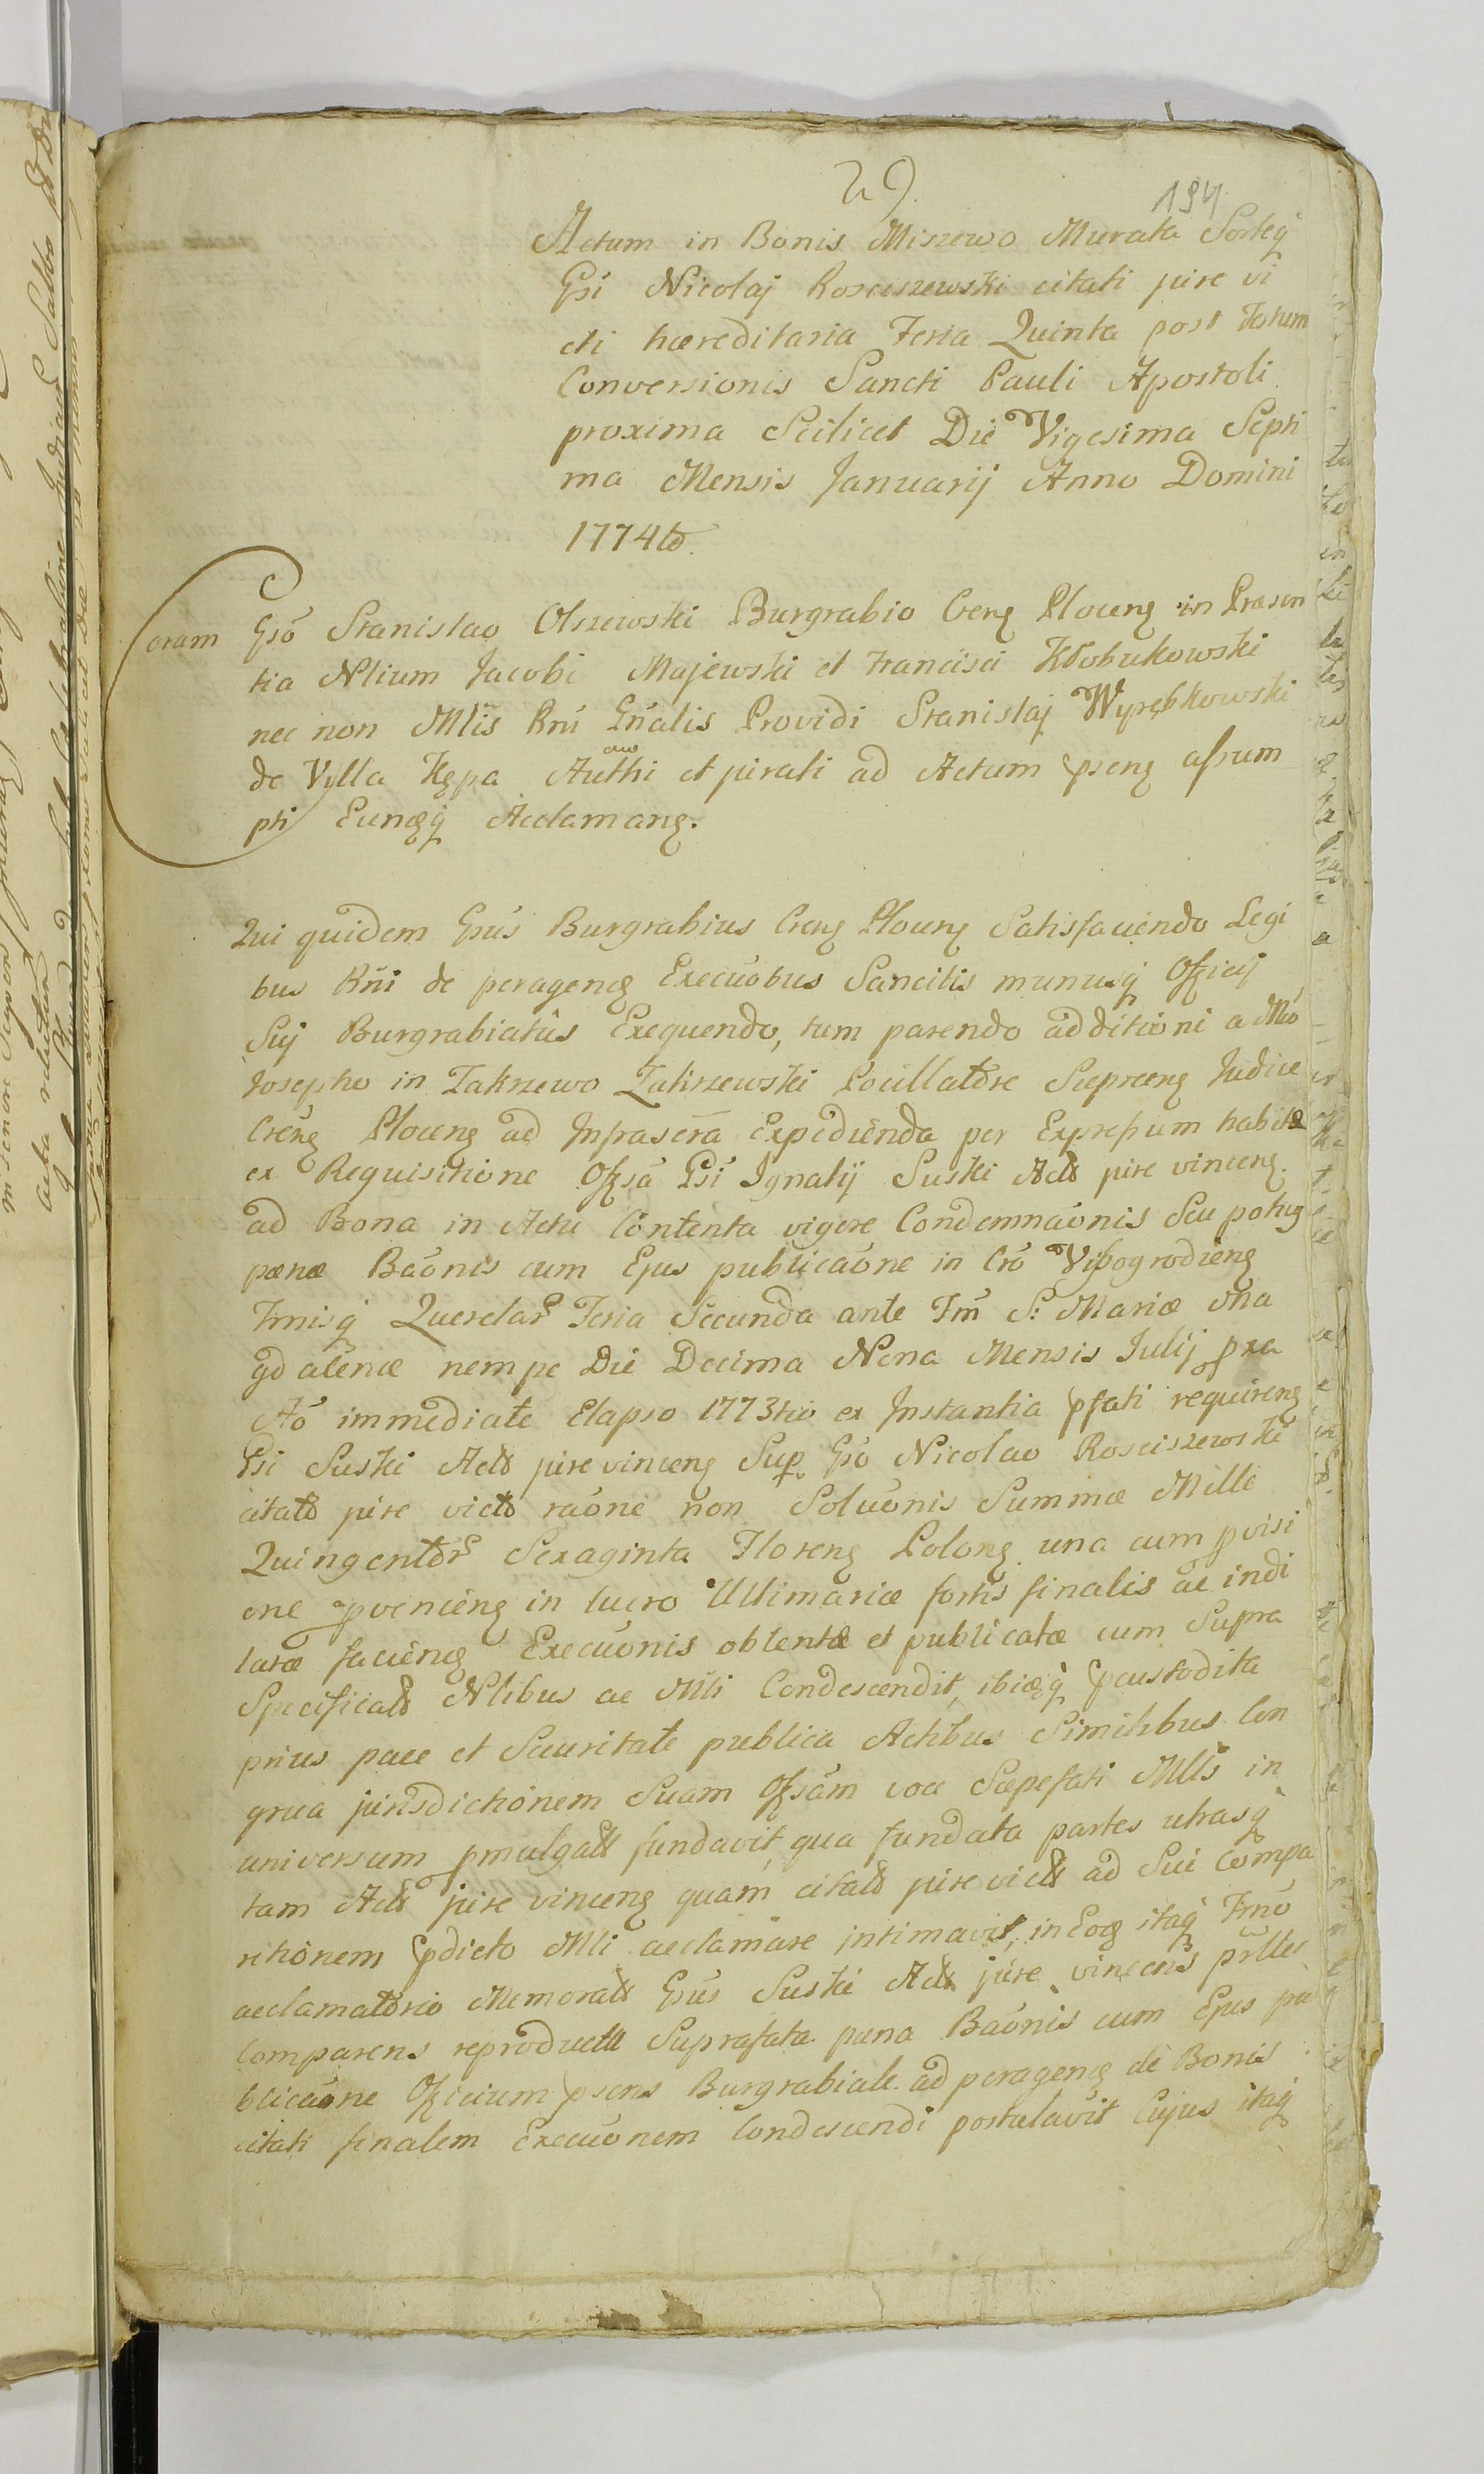 29.
194
Actum in Bonis Miszewo Murata Sorteq́
Gsi Nicolaj Rosciszewski citati jure vi
cti hæreditaria Feria Quinta post Festum
Conversionis Sancti Pauli Apostoli
proxima Scilicet Die Vigesima Septi
ma Mensis Januarij Anno Domini
1774to.
Coram Gsó Stanislao Olszewski Burgrabio Creng Ploceng in Præsen
tia Nlium Jacobi Majewski et Francisci Kłobukowski
nec non Mlis Rni Gñalis Providi Stanislaj Wyrębkowski
de Vylla Kępa Authi et jurati ad Actum pseng assum
pti Euncq́ Acclamang.
Qui quidem Gsús Burgrabius Creng Ploceng Satisfaciendo Legi
bus Rñi de perageng Execuóbus Sancitis munusq́ Officij
Suj Burgrabiatûs Exequendo, tum parendo additioni a Mlo
Josepho in Zakrzewo Zakrzewski Pocillatóre Sieprceng Judice
Creng Ploceng ad Infrascra Expedienda per Expressum habitæ
ex Requisitione Offsá Gsi Ignatij Suski Acts jure vinceng.
ad Bona in Actu Contenta vigore Condemnaónis Seu potug
pænæ Baónis cum Ejus publicaóne in Cró Vissogrodieng
Tmisq́ Querelar Feria Secunda ante Fm S: Mariæ Ma
gdalenæ nempe Die Decima Nona Mensis Julij pxa
Aó immediate Elapso 1773tio ex Instantia pfati requireng
Gsi Suski Acts jure vinceng Sup. Gsó Nicolao Rosciszewski
citato jure victo raóne non Soluónis Summæ Mille
Quingentór Sexaginta Floreng Polong una cum pvisi
one pvenieng in lucro Ultimariæ sortis finalis ac indi
latæ facieng Execuónis obtentæ et publicatæ cum Supra
Specificats Nlibus ac Mli Condescendit, ibiq́ pcustodita
prius pace et Securitate publica Actibus Similibus Con
grua jurisdictionem Suam Offsám voce Sæpefati Mlis in
universum pmulgats fundavit, qua fundata partes utrasq́
tam Acts jure vinceng quam citats jure victs ad Sui Compa
ritionem pdicto Mli acclamare intimavit, in Eog itaq́ Tmó
acclamatorio Memorats Gsús Suski Acts jure vincens prlter
Comparens reproducta Suprafata pæna Baónis cum Ejus pu
blicaóne Officium psens Burgrabiale ad perageng de Bonis
citati finalem Execuónem Condescendi postulavit Cujus itaq́